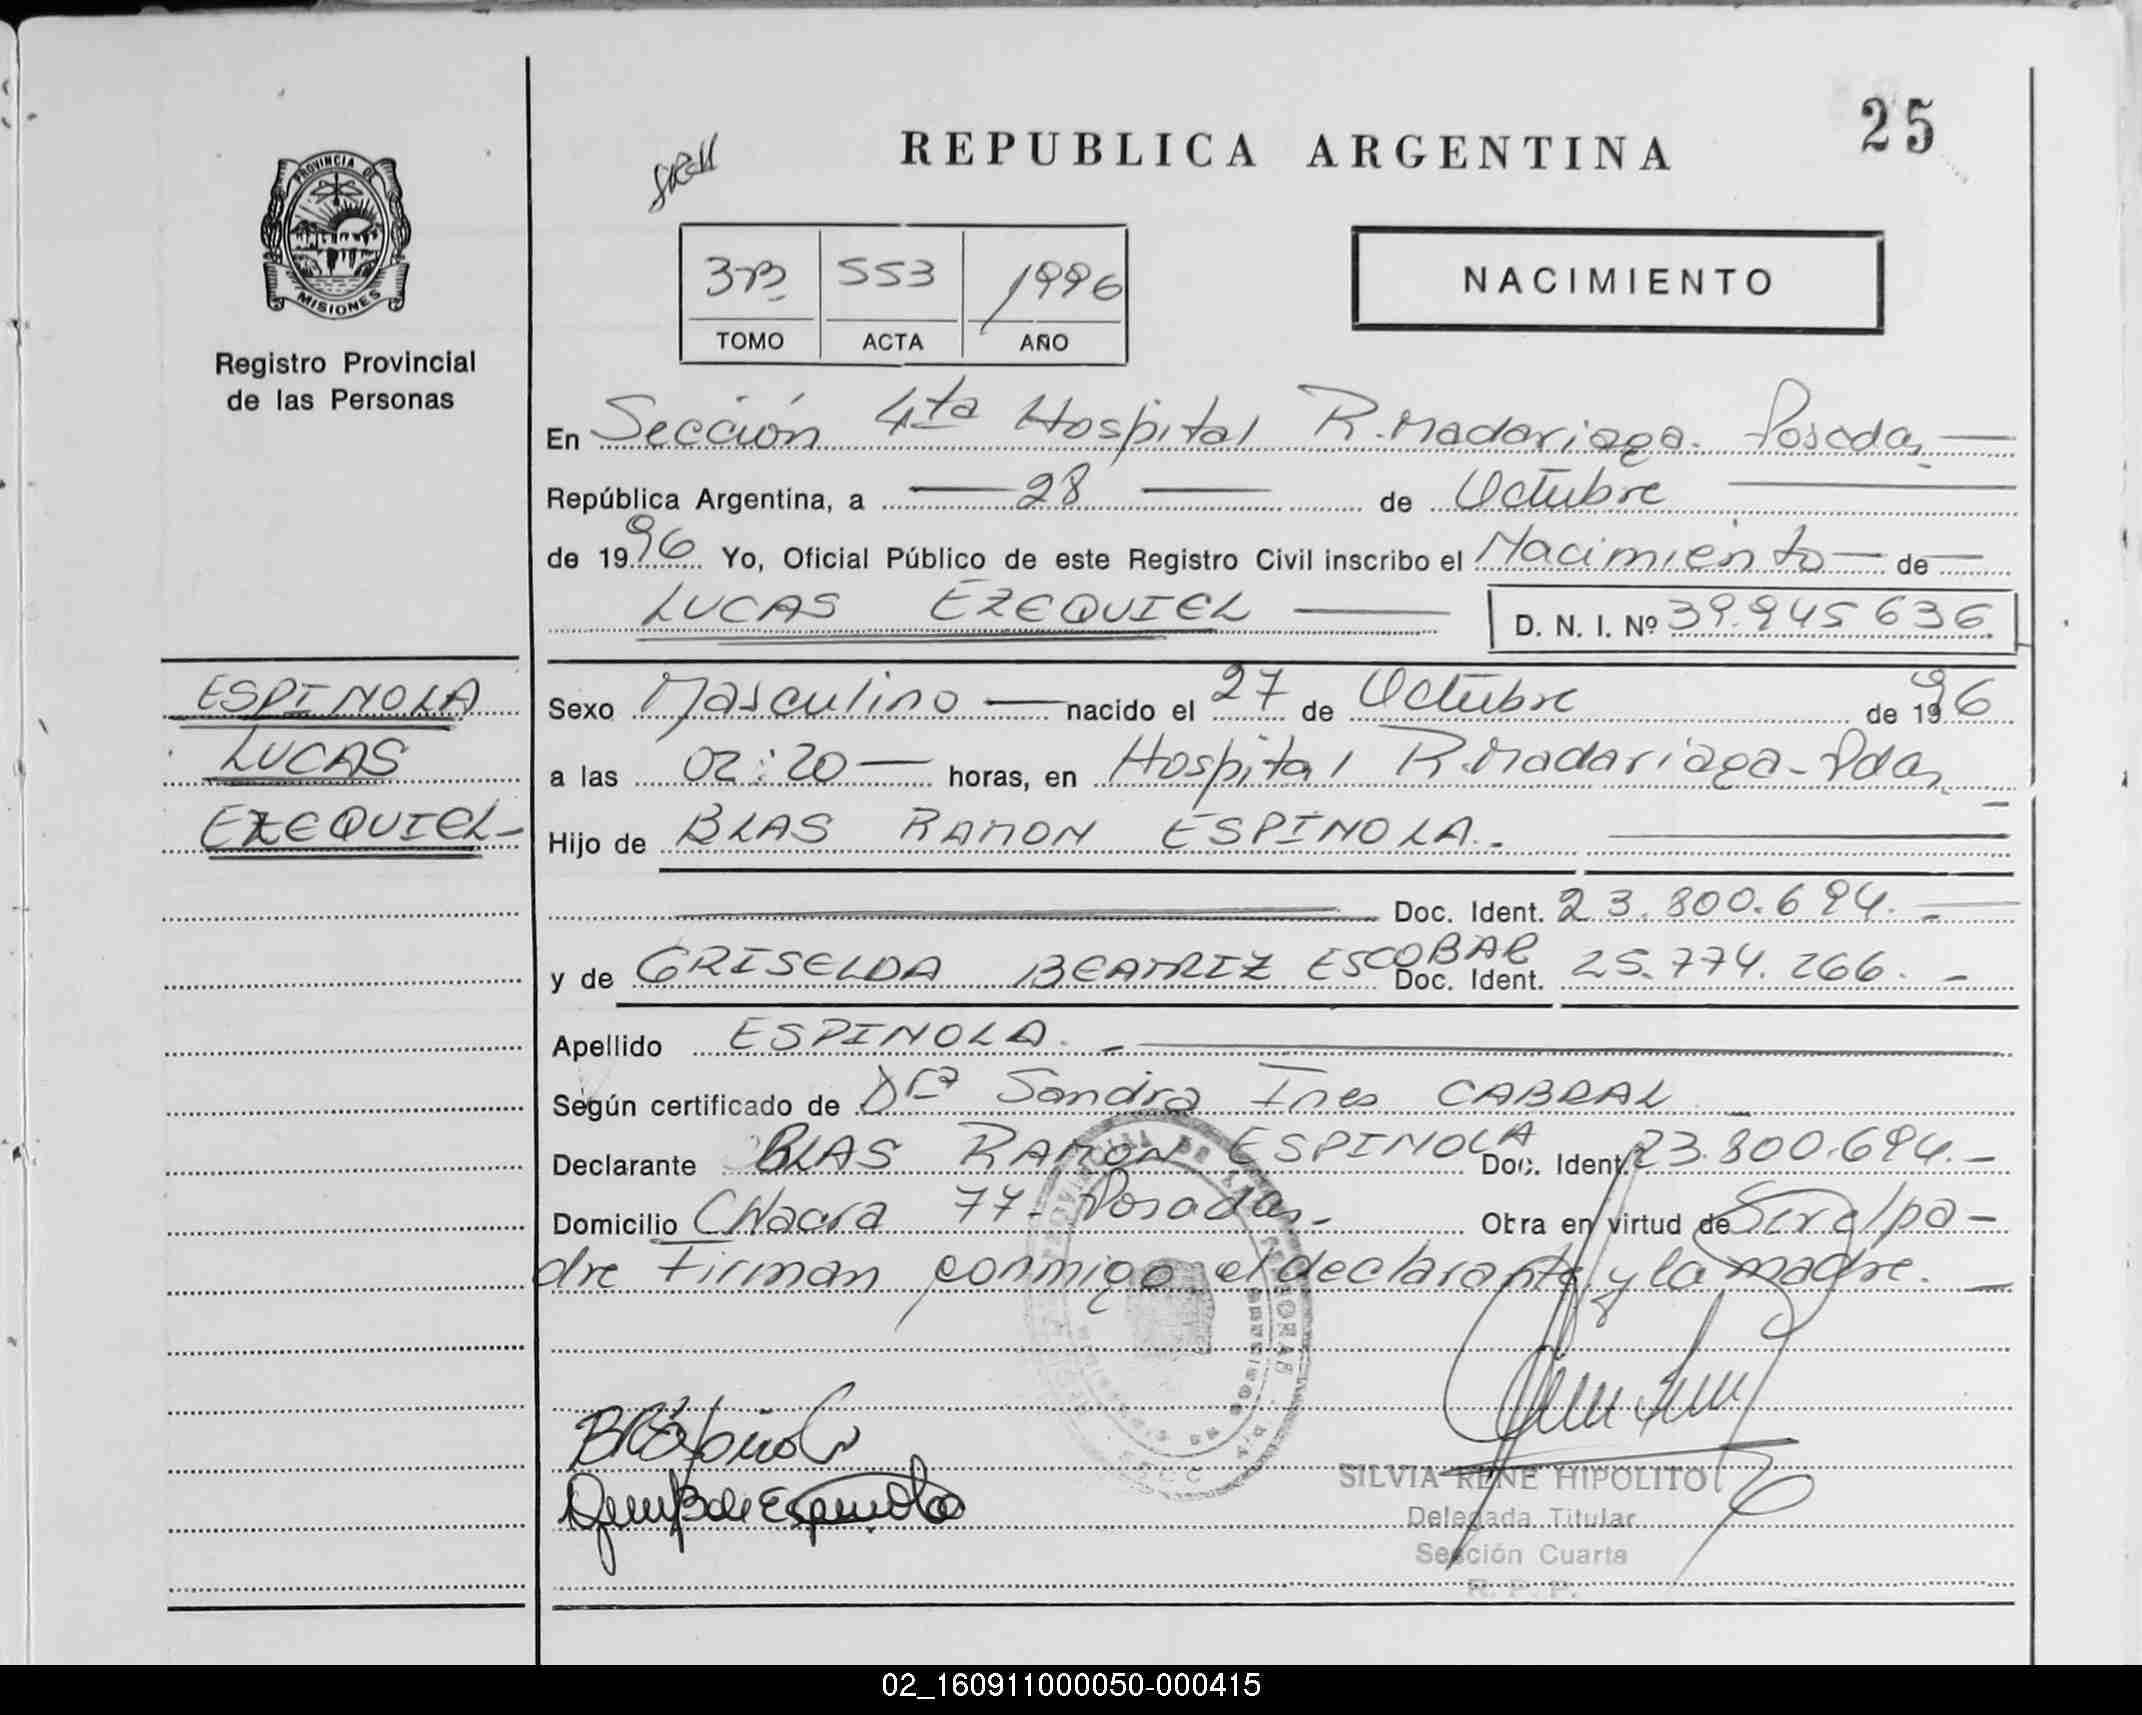 25
REPUBLICA ARGENTINA
PROVINCIA DE
MISIONES
Registro Provincial
de las Personas
3B 553 1996
TOMO ACTA AÑO
NACIMIENTO
En Sección 4ta Hospital R. Madariaga. Posadas
República Argentina, a 28 de Octubre
de 1996 Yo, Oficial Público de este Registro Civil inscribo el Nacimiento de
LUCAS EZEQUIEL D. N. I. Nº 39.945 636
ESPINOLA
LUCAS
EZEQUIEL-
Sexo Masculino nacido el 27 de Octubre de 1996
a las 02:20 horas, en Hospital R. Madariaga-Pdas
Hijo de BLAS RAMON ESPINOLA.-
Doc. Ident. 23.800.694.-
y de GRISELDA BEATRIZ ESCOBAR Doc. Ident. 25.774.266.-
Apellido ESPINOLA.-
Según certificado de Dra Sandra Ines CABRAL
Declarante BLAS RAMON ESPINOLA Doc. Ident. 23.800.694.-
Domicilio Chacra 77- Posadas.- Obra en virtud de Ser el pa-
dre Firman conmigo el declarante y la madre.
SILVIA RENE HIPOLITO
Delegada Titular
Sección Cuarta
R. P. P.
02_160911000050-000415